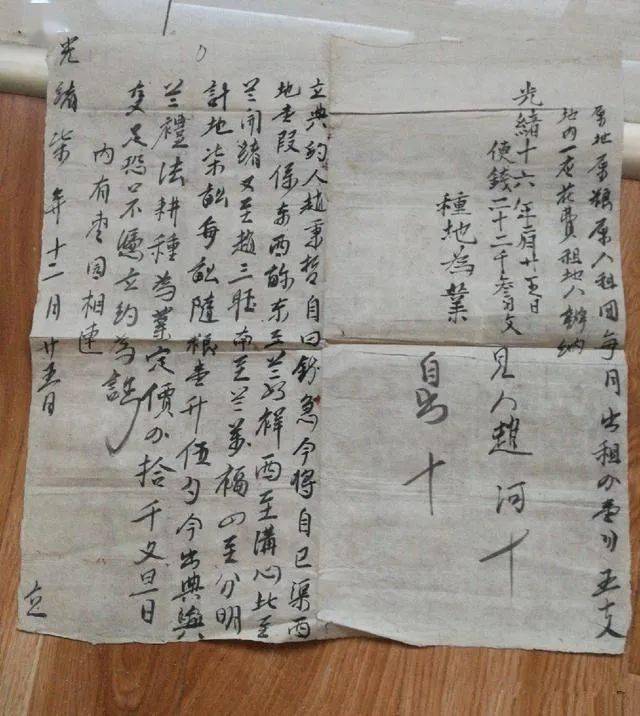 原地原粮原人租回每月出租
地内一应花費租地人辦納
光緒十六年 廿五日
使錢二十二千叁百文
種地為業
見人趙河十
自書十
立典約人趙秉哲自因鈔急今將自己渠西
地壹段係東西畛東至兰 祥西至溝心北至
兰開緒又至趙三旺南至兰萬福四至分明
計地柒畝每畝隨粮壹升伍勺今出典與
兰禮法耕種為業定價 拾千文旦日
交足恐口不憑立約為証
內有枣園相連
光緒柒年十二月廿五日 立